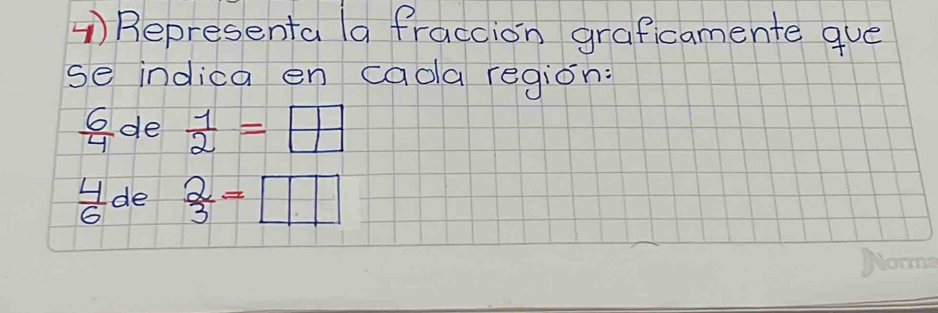 4) Representa la fracción graficamente que
se indica en cada región:
6/4 de 1/2 =
4/6 de 2/3 =
Norma